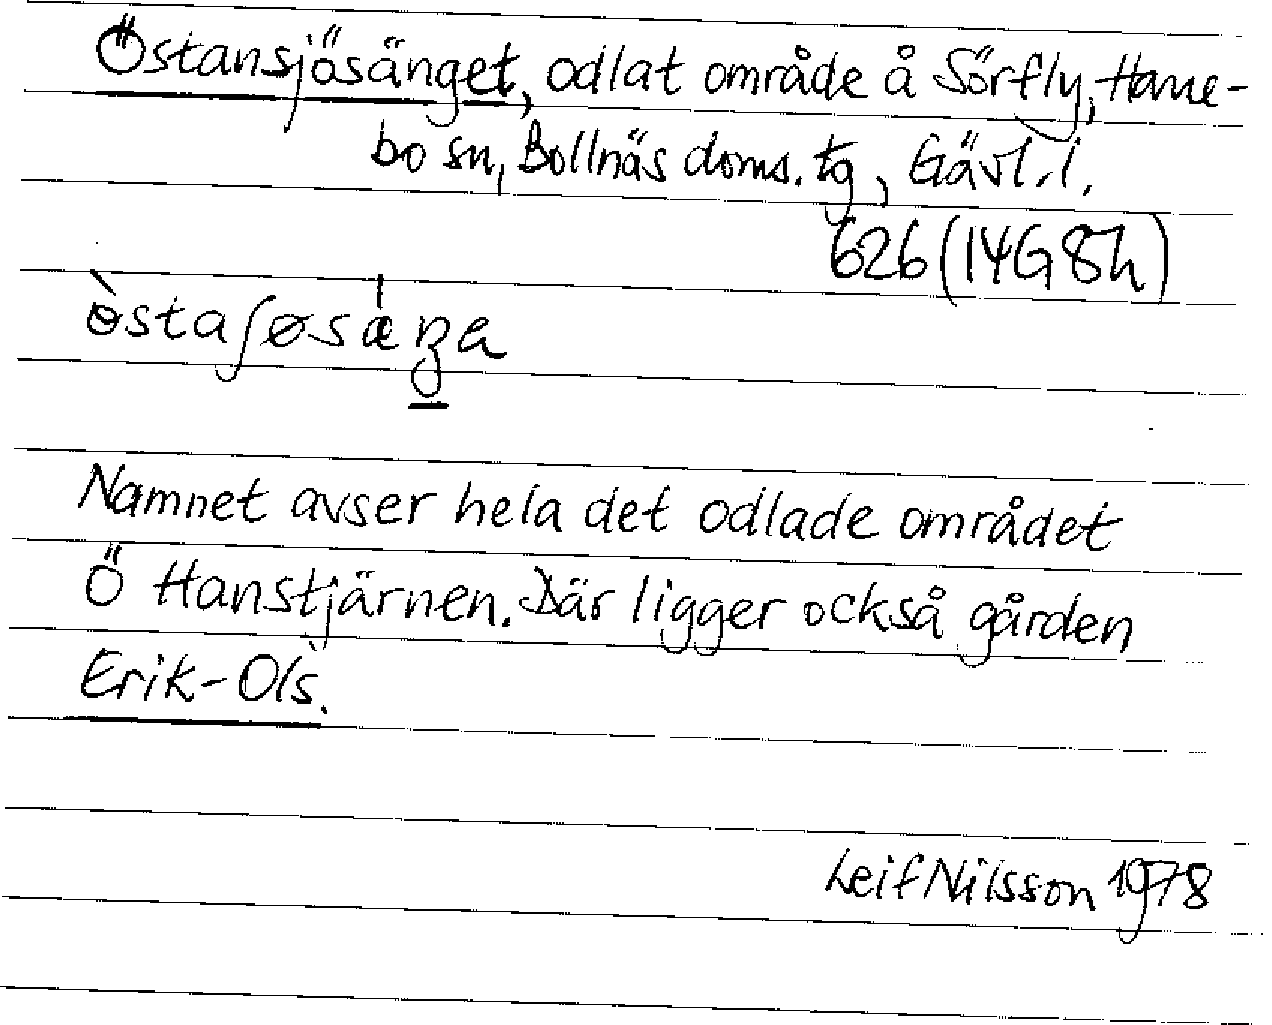 Östansjösänget, odlat område å Sörfly, Hane-
bo sn, Bollnäs doms. tg, Gävl. l.
626 (14G 8h)
ò̀staʃøsǽŋa
Namnet avser hela det odlade området
Ö Hanstjärnen. Där ligger också gården
Erik-Ols.
Leif Nilsson 1978